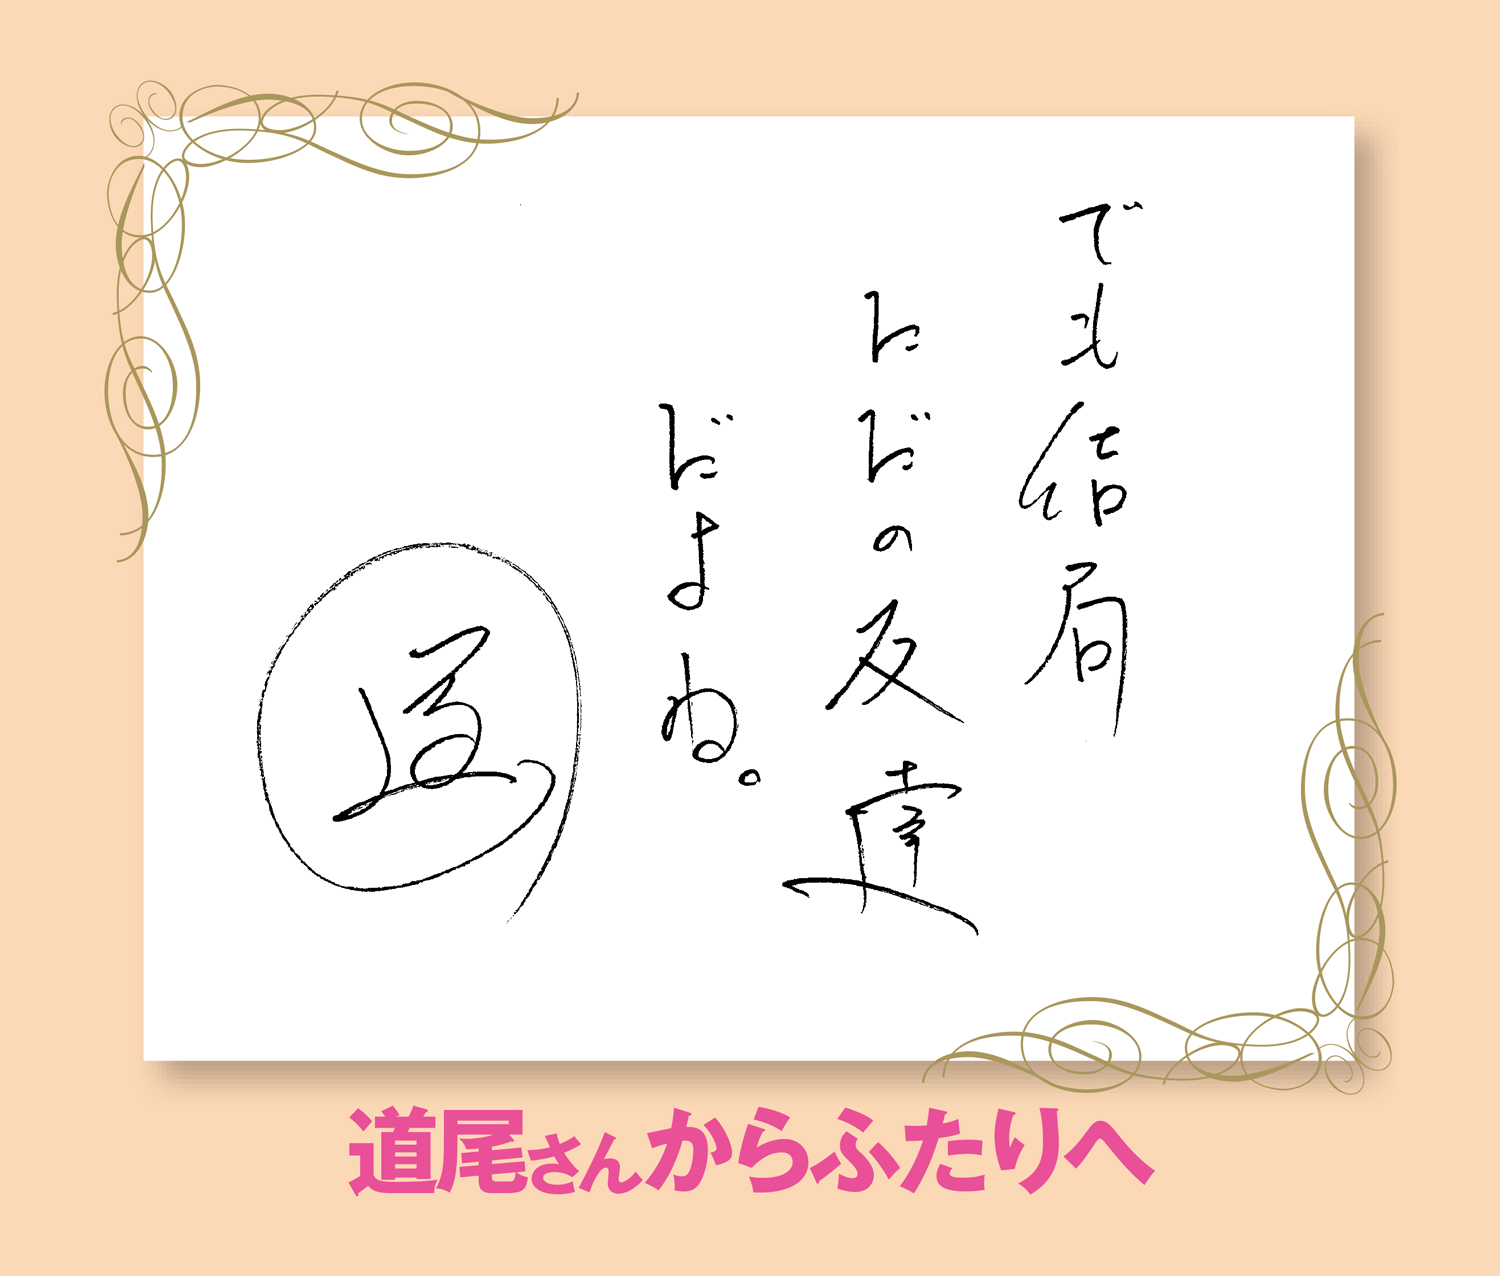 でも結局
ただの友達
だよね。
道
道尾さんからふたりへ